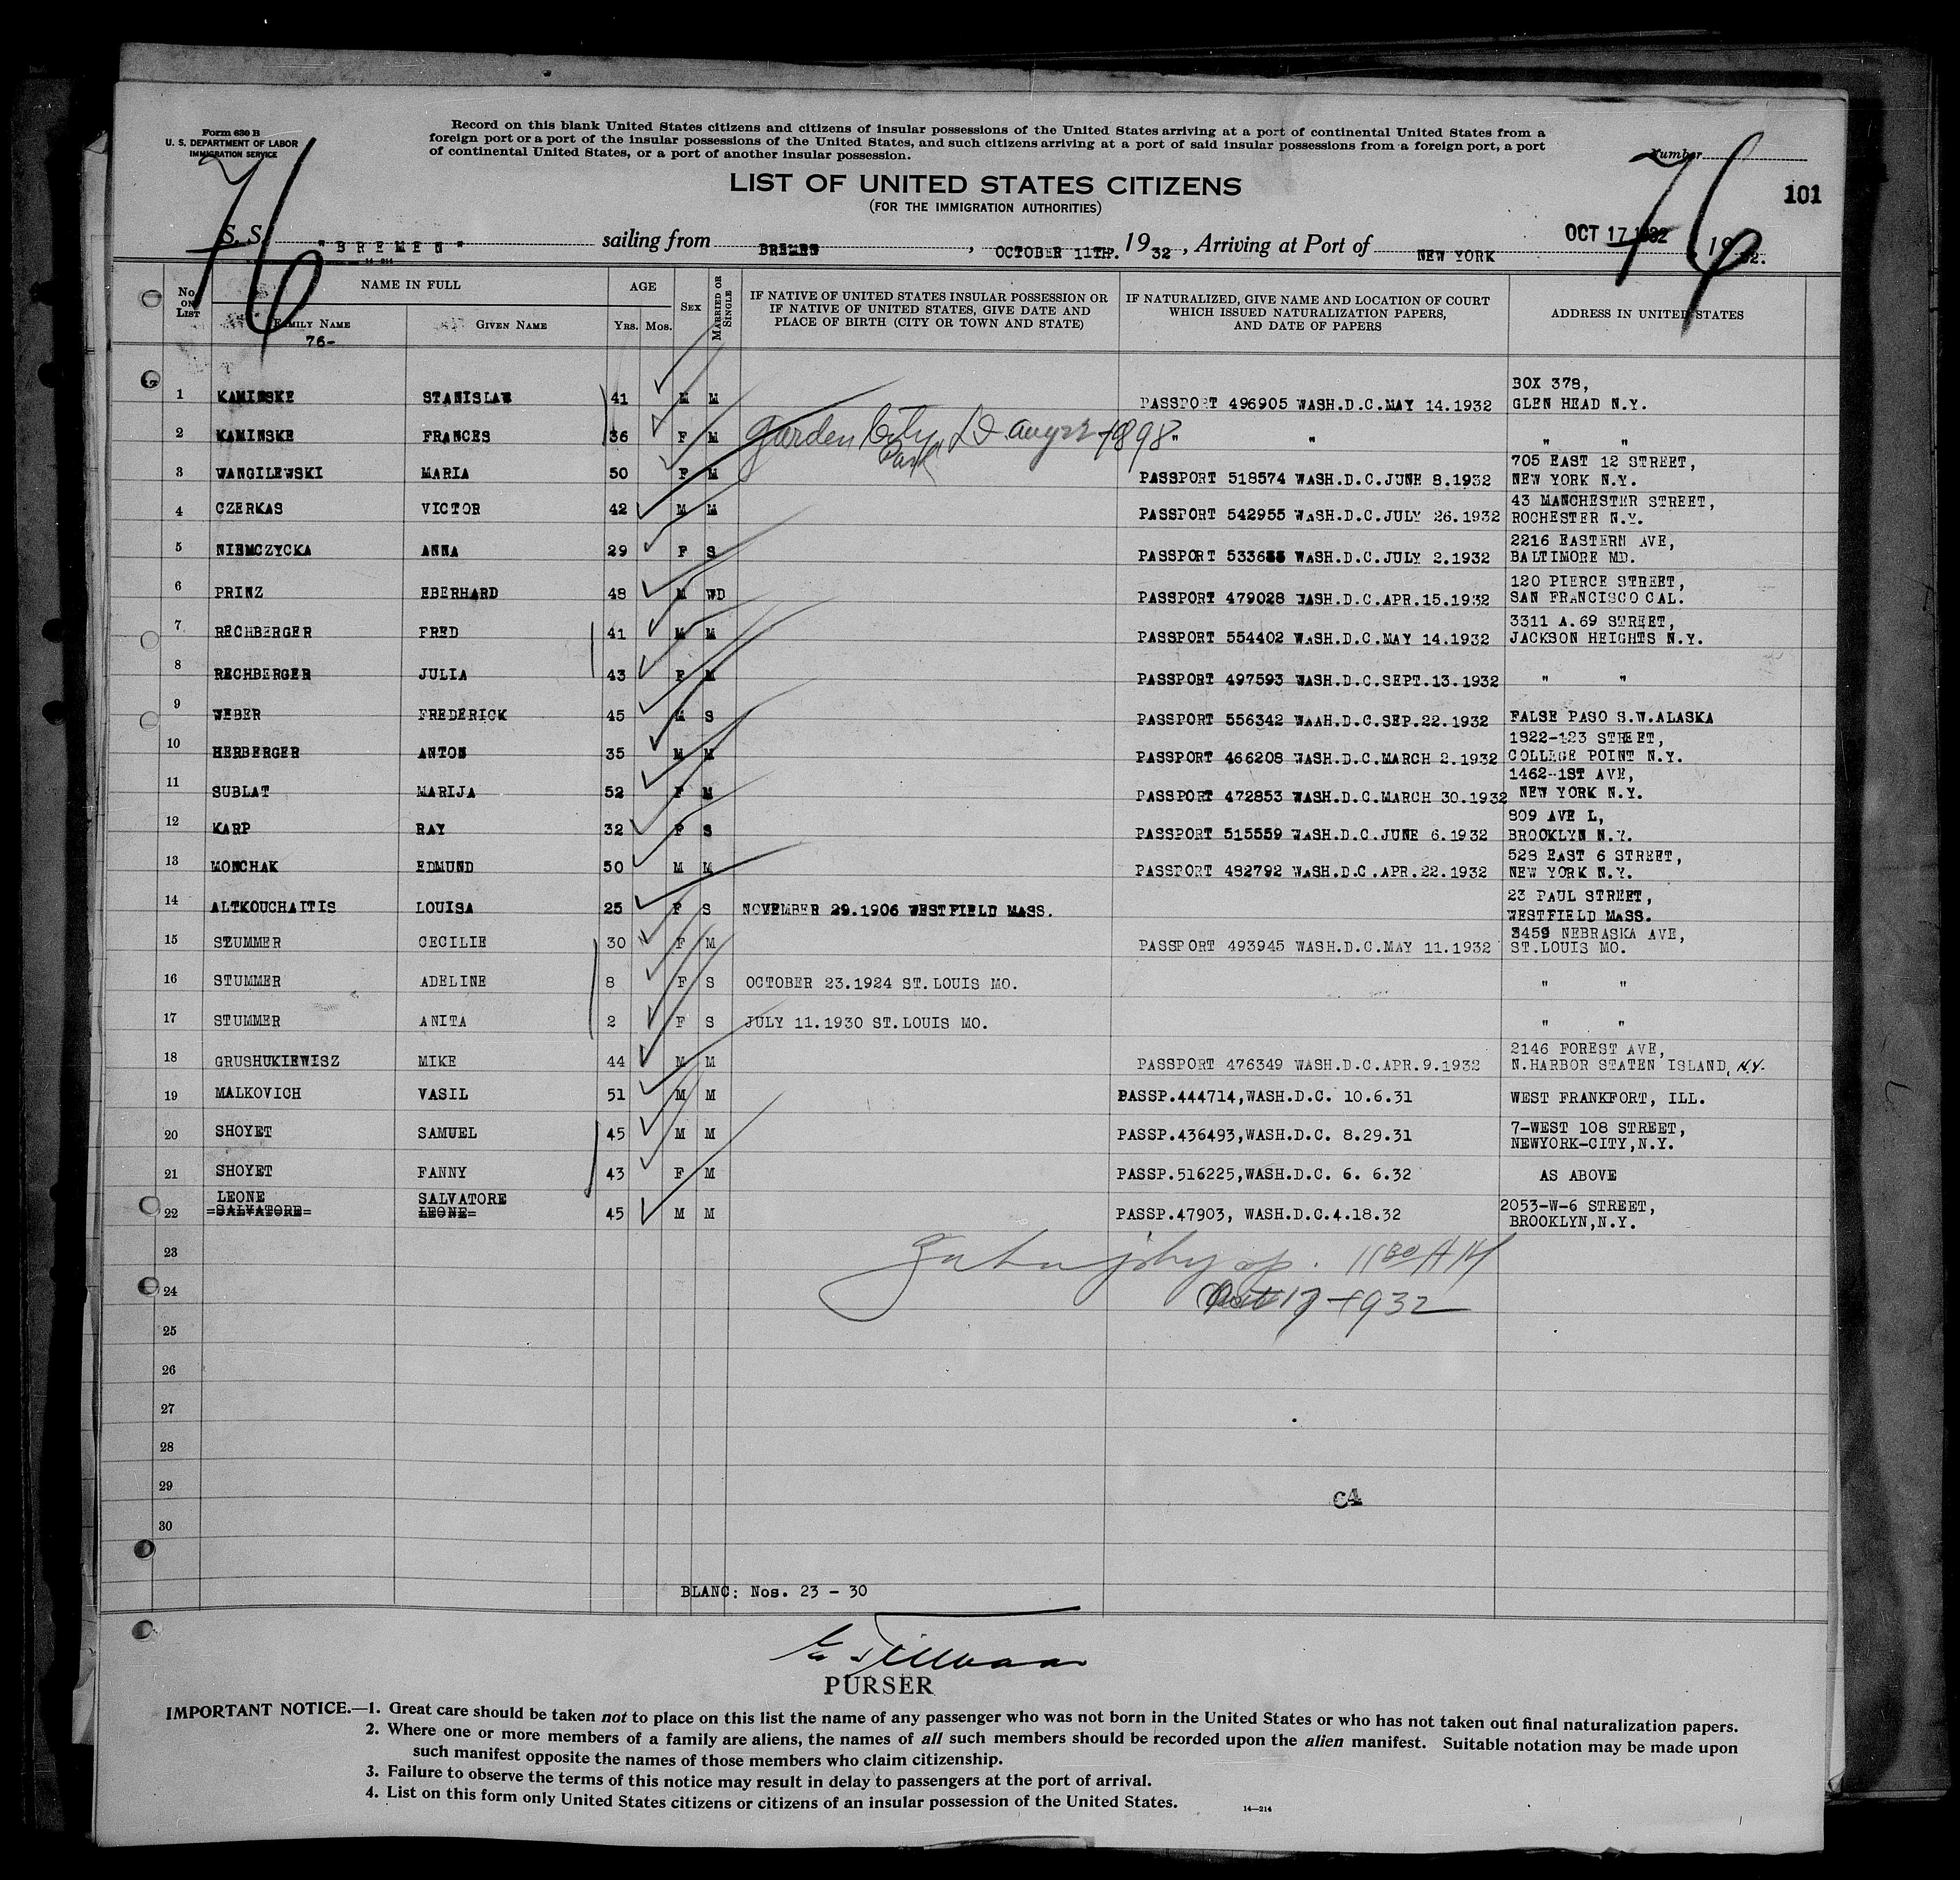 Form 630 B
U. S. DEPARTMENT OF LABOR
IMMIGRATION SERVICE
Record on this blank United States citizens and citizens of insular possessions of the United States arriving at a port of continental United States from a
foreign port or a port of the insular possessions of the United States, and such citizens arriving at a port of said insular possessions from a foreign port, a port
of continental United States, or a port of another insular possession.
Number
76
76
101
LIST OF UNITED STATES CITIZENS
(FOR THE IMMIGRATION AUTHORITIES)
S. S. "BREMEN" sailing from BREMEN, OCTOBER 11TH. 1932, Arriving at Port of NEW YORK OCT 17 1932, 1932.
14-214
No. on List NAME IN FULL AGE Sex Married or Single IF NATIVE OF UNITED STATES INSULAR POSSESSION OR IF NATIVE OF UNITED STATES, GIVE DATE AND PLACE OF BIRTH (CITY OR TOWN AND STATE) IF NATURALIZED, GIVE NAME AND LOCATION OF COURT WHICH ISSUED NATURALIZATION PAPERS, AND DATE OF PAPERS ADDRESS IN UNITED STATES
Family Name Given Name Yrs. Mos.
76-
1 KAMINSKE STANISLAW 41 M M PASSPORT 496905 WASH.D.C.MAY 14.1932 BOX 378, GLEN HEAD N.Y.
2 KAMINSKE FRANCES 36 F M Garden City Park L.I. Aug 22-1898 " " " "
3 WANGILEWSKI MARIA 50 F M PASSPORT 518574 WASH.D.C.JUNE 8.1932 705 EAST 12 STREET, NEW YORK N.Y.
4 CZERKAS VICTOR 42 M M PASSPORT 542955 WASH.D.C.JULY 26.1932 43 MANCHESTER STREET, ROCHESTER N.Y.
5 NIEMCZYCKA ANNA 29 F S PASSPORT WASH.D.C.JULY 2.1932 2216 EASTERN AVE, BALTIMORE MD.
6 PRINZ EBERHARD 48 M WD PASSPORT 479028 WASH.D.C.APR.15.1932 120 PIERCE STREET, SAN FRANCISCO CAL.
7 RECHBERGER FRED 41 M M PASSPORT 554402 WASH.D.C.MAY 14.1932 3311 A.69 STREET, JACKSON HEIGHTS N.Y.
8 RECHBERGER JULIA 43 F M PASSPORT 497593 WASH.D.C.SEPT.13.1932 " "
9 WEBER FREDERICK 45 M S PASSPORT 556342 WAAH.D.C.SEP.22.1932 FALSE PASO S.W.ALASKA
10 HERBERGER ANTON 35 M M PASSPORT 466208 WASH.D.C.MARCH 2.1932 1822-123 STREET, COLLEGE POINT N.Y.
11 SUBLAT MARIJA 52 F M PASSPORT 472853 WASH.D.C.MARCH 30.1932 1462-1ST AVE, NEW YORK N.Y.
12 KARP RAY 32 F S PASSPORT 515559 WASH.D.C.JUNE 6.1932 809 AVE L, BROOKLYN N.Y.
13 MONCHAK EDMUND 50 M M PASSPORT 482792 WASH.D.C.APR.22.1932 528 EAST 6 STREET, NEW YORK N.Y.
14 ALTKOUCHAITIS LOUISA 25 F S NOVEMBER 29.1906 WESTFIELD MASS. 23 PAUL STREET, WESTFIELD MASS.
15 STUMMER CECILIE 30 F M PASSPORT 493945 WASH.D.C.MAY 11.1932 3459 NEBRASKA AVE, ST.LOUIS MO.
16 STUMMER ADELINE 8 F S OCTOBER 23.1924 ST.LOUIS MO. " "
17 STUMMER ANITA 2 F S JULY 11.1930 ST.LOUIS MO. " "
18 GRUSHUKIEWISZ MIKE 44 M M PASSPORT 476349 WASH.D.C.APR.9.1932 2146 FOREST AVE, N.HARBOR STATEN ISLAND, N.Y.
19 MALKOVICH VASIL 51 M M PASSP.444714,WASH.D.C. 10.6.31 WEST FRANKFORT, ILL.
20 SHOYET SAMUEL 45 M M PASSP.436493,WASH.D.C. 8.29.31 7-WEST 108 STREET, NEWYORK-CITY,N.Y.
21 SHOYET FANNY 43 F M PASSP.516225,WASH.D.C. 6. 6.32 AS ABOVE
22 LEONE =SALVATORE= SALVATORE LEONE= 45 M M PASSP.47903, WASH.D.C.4.18.32 2053-W-6 STREET, BROOKLYN,N.Y.
23 11 30 AM
24 Oct 17-1932
25
26
27
28
29 C4
30
BLANC: Nos. 23 - 30
PURSER
IMPORTANT NOTICE.—1. Great care should be taken not to place on this list the name of any passenger who was not born in the United States or who has not taken out final naturalization papers.
2. Where one or more members of a family are aliens, the names of all such members should be recorded upon the alien manifest. Suitable notation may be made upon
such manifest opposite the names of those members who claim citizenship.
3. Failure to observe the terms of this notice may result in delay to passengers at the port of arrival.
4. List on this form only United States citizens or citizens of an insular possession of the United States.
14—214